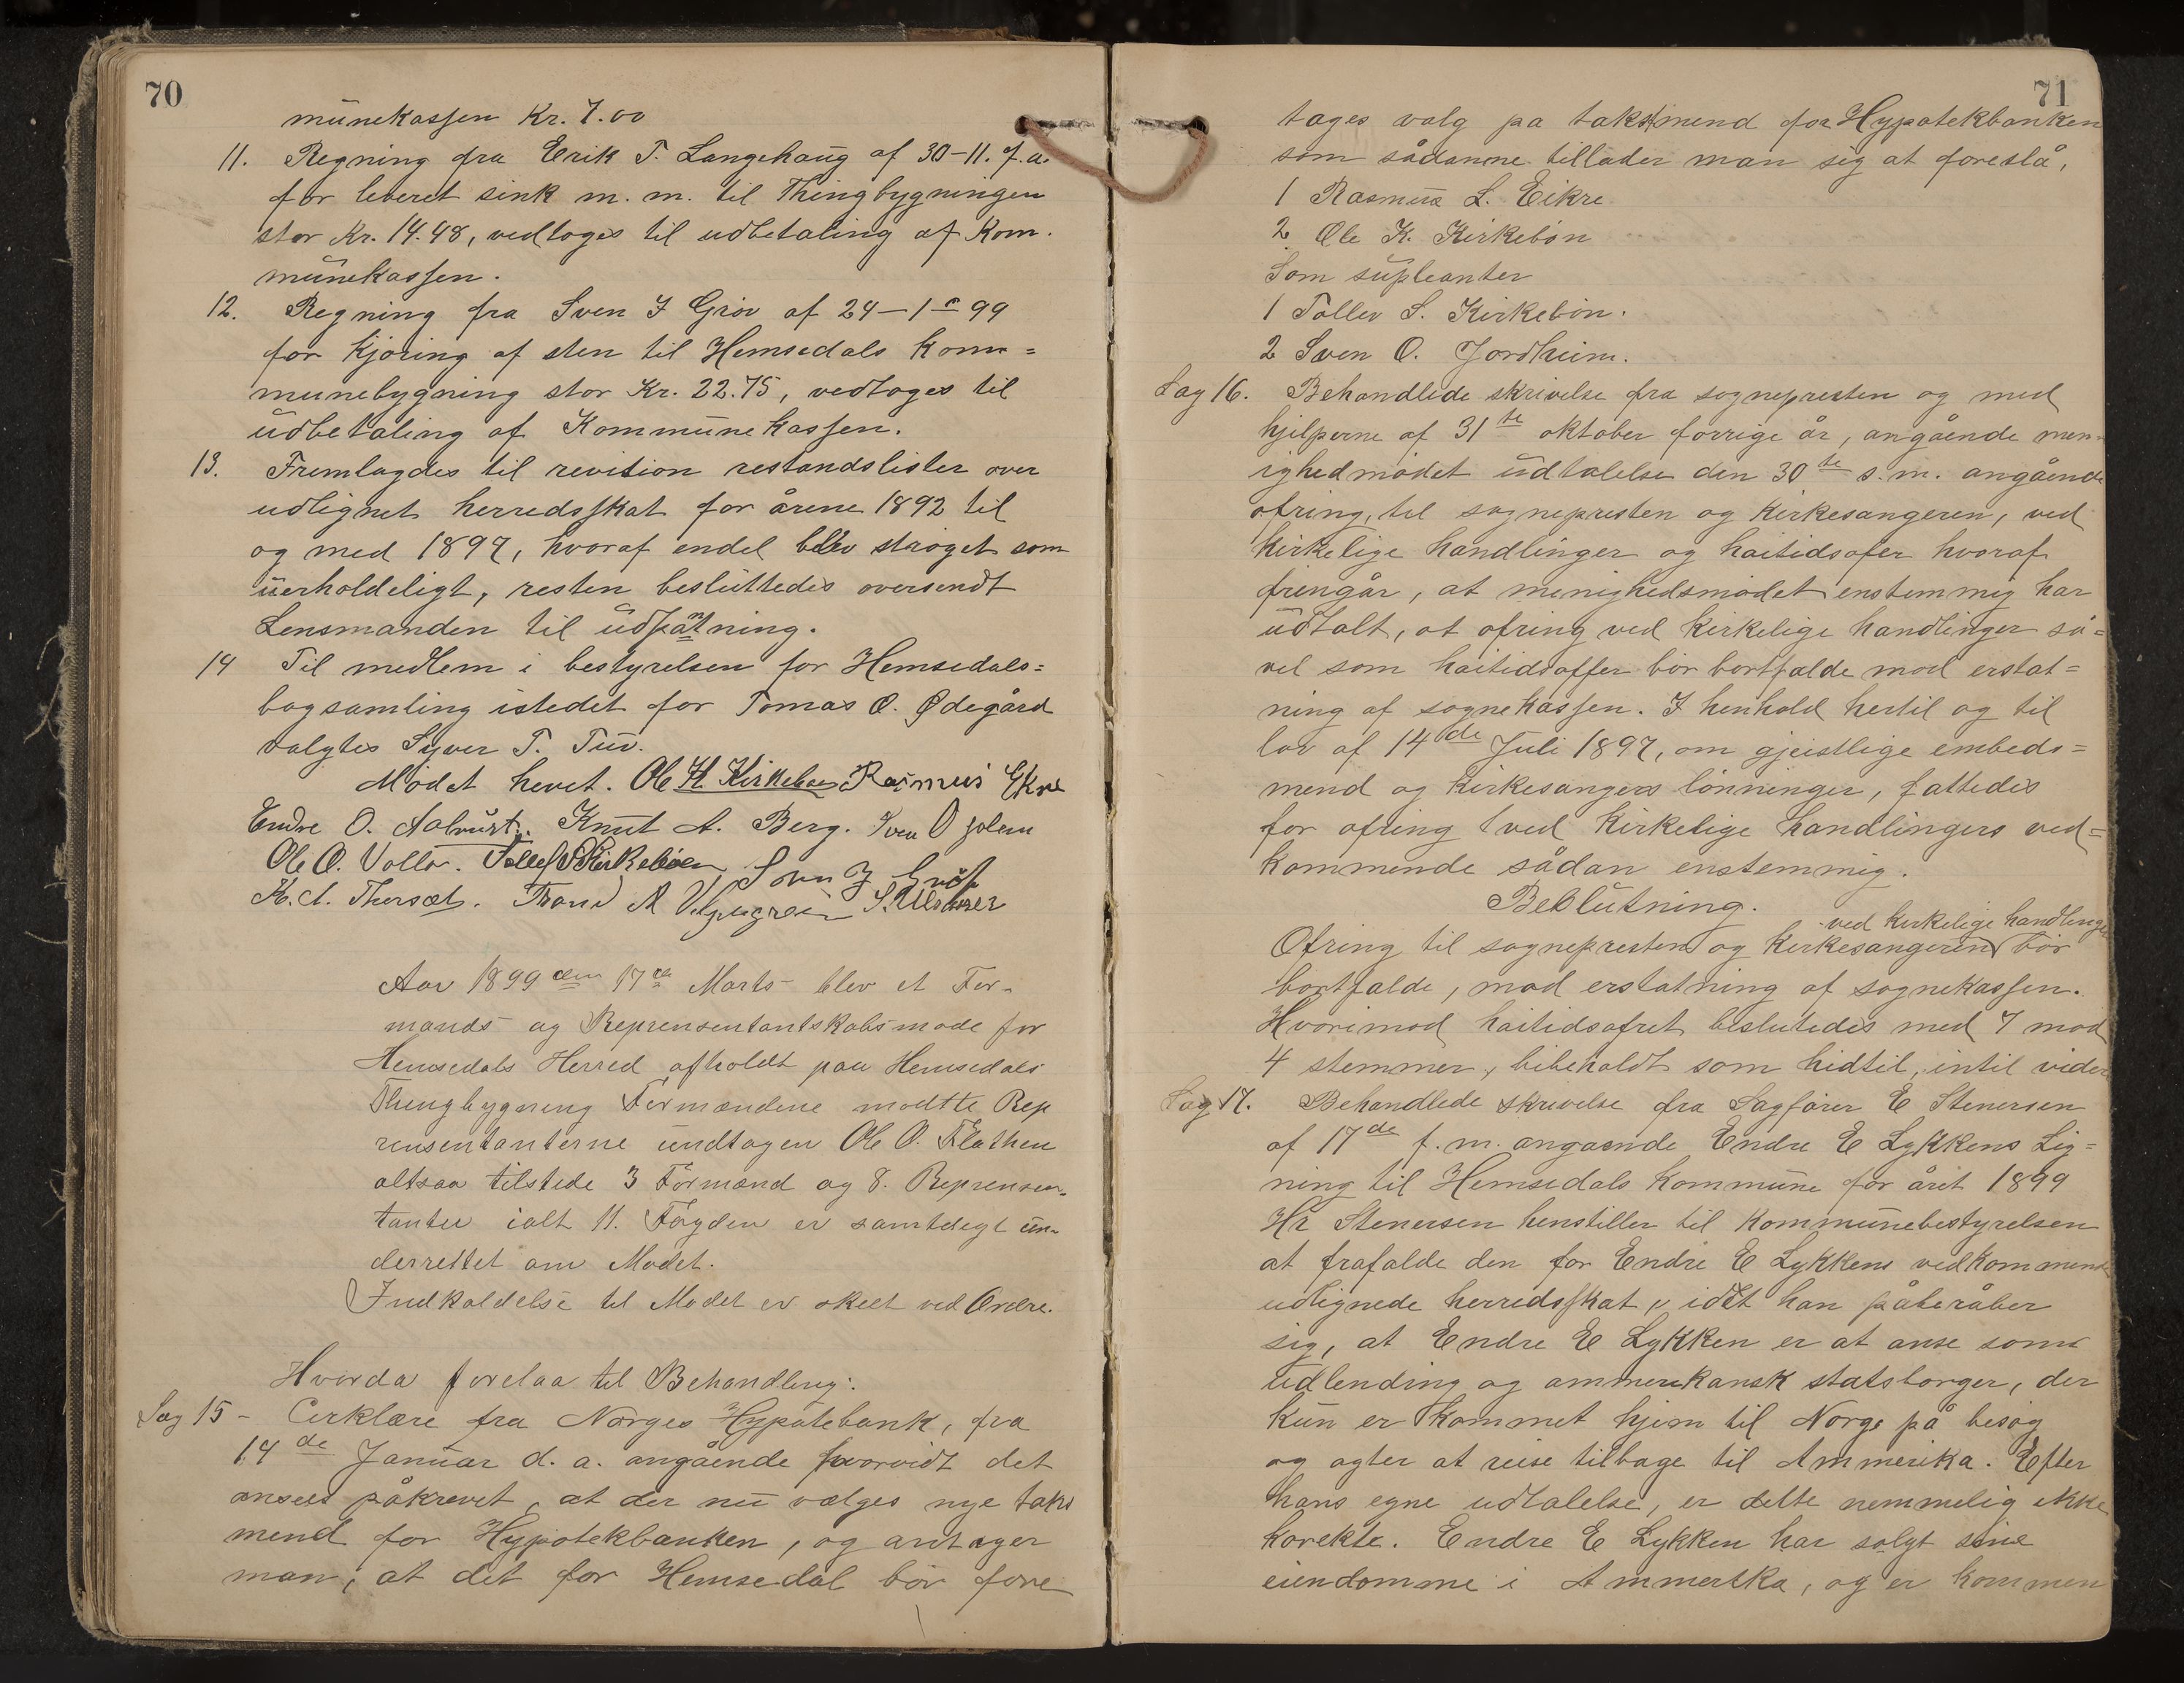 70
munekassen Kr. 7.00
11. Regning fra Erik T. Langehaug af 30-11. f.a.
for leveret sink m. m. til Thingbygningen
stor Kr. 14.48, vedtoges til udbetaling af Kom-
munekassen.
12. Regning fra Sven J Grøv af 24-1-99
for kjøring af sten til Hemsedals kom=
munebygning stor Kr. 22.75, vedtoges til
udbetaling af Kommunekassen.
13. Fremlagdes til revition restandslister over
udlignet herredsskat for årene 1892 til
og med 1897, hvoraf endel blev strøget som
uerholdeligt, resten besluttedes oversendt
Lensmanden til udpantning.
14 Til medlem i bestyrelsen for Hemsedals=
bogsamling istedet for Tomas O. Ødegård
valgtes Syver T. Tuv.
Mødet hevet. Ole K. Kirkebøen Rasmus Ekre
Endre O. Aalrust. Knut A. Berg. Sven O
Ole O. Vollo. Tollef S Kirkebøen Sven J Grøv
K. A. Thorset. Trond A
Aar 1899 den 17de Marts blev et For-
mands og Reprensentantskabsmøde for
Hemsedals Herred afholdt paa Hemsedals
Thingbygning Formændene mødtte Rep
rensentanterne undtagen Ole O. Flathen
altsaa tilstede 3 Formænd og 8. Reprensen-
tanter ialt 11. Fogden er samtdegt un-
derrettet om Mødet.
Indkaldelse til Mødet er skeet ved Ordre.
Hvorda forelaa til Behandling:
Sag 15 - Cirklære fra Norges Hypotebank, fra
14de Januar d. a. angående hvorvidt det
ansees påkrevet, at der nu vælges nye taks
mend for Hypotekbanken, og antager
man, at det for Hemsedal bør fore
71
tages valg pa takstmend for Hypotekbanken
som sådanne tillader man sig at foreslå,
1 Rasmus L. Eikre
2 Ole K. Kirkebøn
Som supleanter
1 Tollev S. Kirkebøn.
2 Sven O. Jordheim.
Sag 16. Behandlede skrivelse fra sognepresten og med
hjelperne af 31te oktober forrige år, angående men-
ighedmødet udtalelse den 30te s. m. angående
ofring, til sognepresten og kirkesangeren, ved
kirkelige handlinger og høitidsofer hvoraf
fremgår, at menighedsmødet enstemmig har
udtalt, at ofring ved kirkelige handlinger så=
vel som høitidsoffer bør bortfalde mod erstat=
ning af sognekassen. I henhold hertil og til
lov af 14de Juli 1897, om gjeistlige embeds=
mend og kirkesangers lønninger, fattedes
for ofring ved kirkelige handlingers ved=
kommende sådan enstemmig.
Beslutning.
ved kirkelige handlinger
Ofring til sognepresten og kirkesangeren bør
bortfalde, mod erstatning af sognekassen.
Hvorimod høitidsofret beslutedes med 7 mod
4 stemmer, bibeholdt som hidtil, intil videre
Sag 17. Behandlede skrivelse fra Sagfører E Stenersen
af 17de f. m. angaende Endre E Lykkens Lig=
ning til Hemsedals kommune for året 1899
Hr Stenersen henstiller til kommunebestyrelsen
at frafalde den for Endre E Lykkens vedkommende
udlignede herredsskat, idet han påberåber
sig, at Endre E Lykken er at anse som
udlending og ammerikansk statsborger, der
kun er kommet hjem til Norge på besøg
og agter at reise tilbage til Ammerika. Efter
hans egne udtalelse, er dette nemmelig ikke
korekte. Endre E Lykken har solgt sine
eiendomme i Ammerika, og er kommen